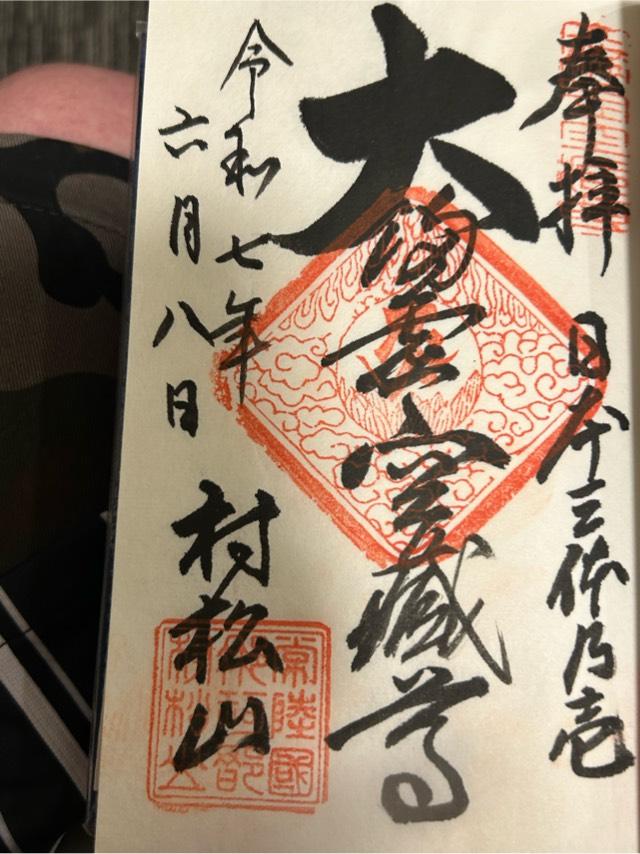 奉拝 日本三体乃壱
大満虚空蔵尊
令和七年
六月八日
村松山
常陸國
村松山